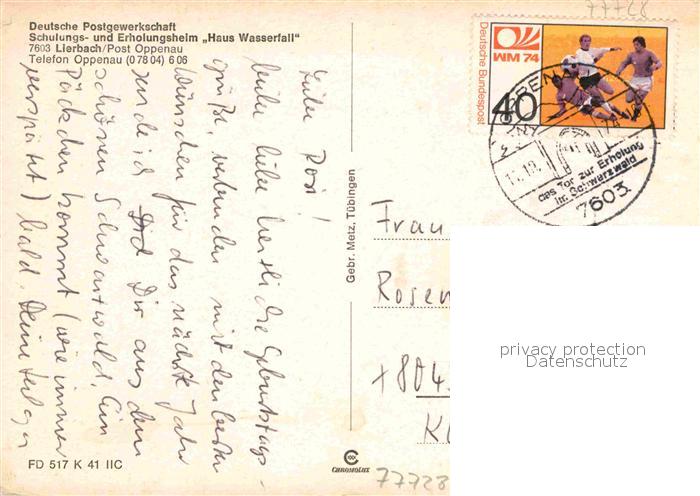 Deutsche Postgewerkschaft
Schulungs- und Erholungsheim „Haus Wasserfall"
7603 Lierbach/Post Oppenau
Telefon Oppenau (0 78 04) 6 06
Liebe Rosi!
liebe herzliche Geburtstags-
grüße, verbunden mit den besten
Wünschen für das nächste Jahr
sendet Dir aus dem
schönen Schwarzwald. Ein
Päckchen kommt (wie immer
verspätet) bald. Deine Helga
FD 517 K 41 IIC
Gebr. Metz, Tübingen
CHROMOLUX
77728
Deutsche Bundespost
WM 74
40
OPPENAU
das Tor zur Erholung
im Schwarzwald
7603
Frau
Rosen
804
77728
privacy protection
Datenschutz